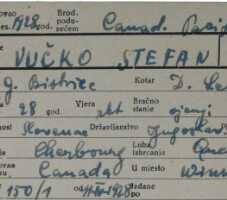 1928 god. Brod. podu-zećem Canad.
VUČKO STEFAN
g. Bistrice Kotar D. Le
28 god. Vjera rkt Bračno stanje oženj
nost Slovenac Državljanstvo Jugoslav
Cherbourg Luka iskrcanja Que
Canada U mjesto Winn
150/1 1928